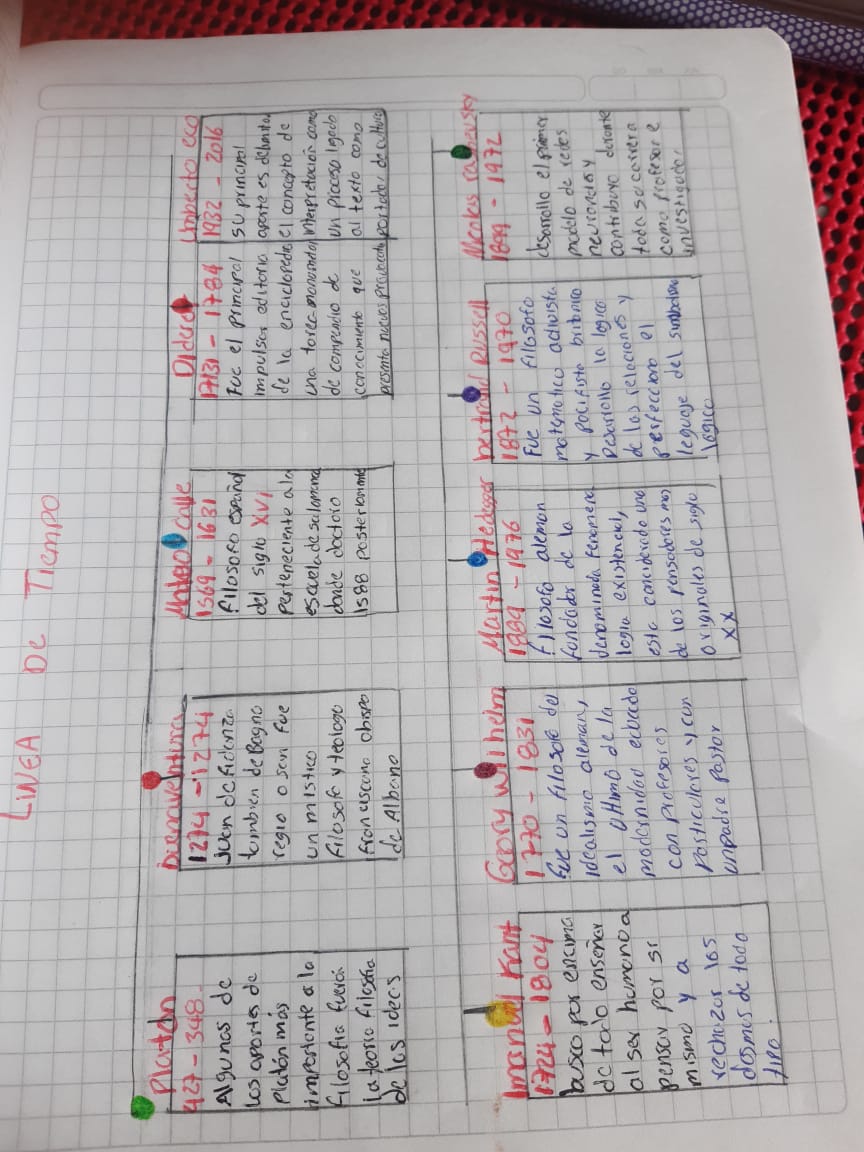 LINEA DE TIEMPO
Platón
427 - 348-
Algunos de
los aportes de
platón más
importante a la
filosofia fuerón
la teoria filosofia
de las ideas
buenaventura
1274 - 1274
Juan de fidenza
tambien de Bagno
regio o seri fue
un mistico
filosofo y teologo
franciscano obispo
de Albano
Mateo calle
1569 - 1631
filosofo español
del siglo XVI
perteneciente a la
escuela de salamanca
donde doctoro
1588 posteriormente
Diderot
1731 - 1784
Fue el principal
impulsor editoria
de la enciclopedia
una tarea monumental
de compendio de
conocimiento que
presenta nuevos
Umberto eco
1932 - 2016
su principal
aporte es delimitar
el concepto de
interpretación como
un proceso ligado
al texto como
portador de cultura
Imanuel Kant
1724 - 1804
busco por encima
de todo enseñar
al ser humano a
pensar por si
mismo y a
rechazar los
dogmas de todo
tipo.
Georg Wilhelm
1770 - 1831
fue un filosofo del
idealismo aleman,
el ultimo de la
modernidad educado
con profesores
particulares y con
un padre Pastor
Martin Hedegger
1889 - 1976
filosofo aleman
fundador de la
denominada fenomeno
logia existencial,
esta considerado uno
de los pensadores mas
originales de siglo
XX
bertrand Russell
1872 - 1970
Fue un filosofo
matematico activista
y pacifista britanico
Desarrollo la logica
de las relaciones y
perfecciono el
leguaje del simbolismo
lógico
Nicolas rashevsky
1899 - 1972
desarrollo el primer
modelo de redes
neuronales y
contribuyo durante
toda su carrera
como profesor e
investigador.